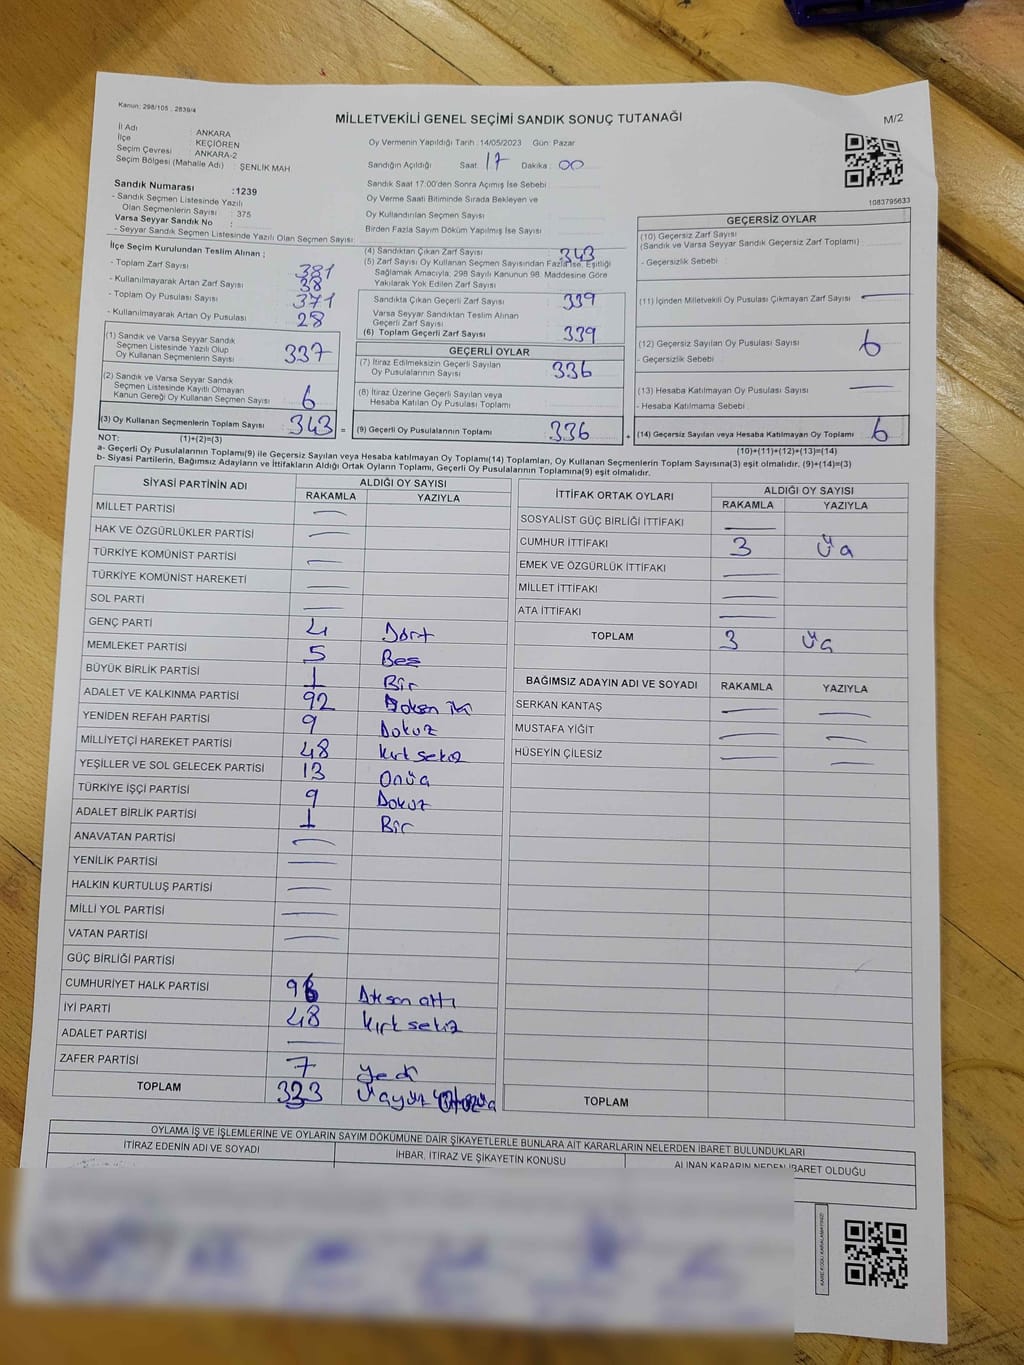 Kanun: 298/105 . 2839/4
MİLLETVEKİLİ GENEL SEÇİMİ SANDIK SONUÇ TUTANAĞI
M/2
İl Adı : ANKARA
İlçe : KEÇİÖREN
Seçim Çevresi : ANKARA-2
Seçim Bölgesi (Mahalle Adı) : ŞENLİK MAH
Oy Vermenin Yapıldığı Tarih :14/05/2023 Gün: Pazar
Sandığın Açıldığı Saat 17 Dakika : 00
Sandık Saat 17:00'den Sonra Açımış İse Sebebi :
Oy Verme Saati Bitiminde Sırada Bekleyen ve
Oy Kullandırılan Seçmen Sayısı :
Birden Fazla Sayım Döküm Yapılmış İse Sayısı :
1083795633
Sandık Numarası :1239
- Sandık Seçmen Listesinde Yazılı
Olan Seçmenlerin Sayısı : 375
Varsa Seyyar Sandık No :
- Seyyar Sandık Seçmen Listesinde Yazılı Olan Seçmen Sayısı:
İlçe Seçim Kurulundan Teslim Alınan ;
- Toplam Zarf Sayısı 381
- Kullanılmayarak Artan Zarf Sayısı 38
- Toplam Oy Pusulası Sayısı 371
- Kullanılmayarak Artan Oy Pusulası 28
(1) Sandık ve Varsa Seyyar Sandık
Seçmen Listesinde Yazılı Olup
Oy Kullanan Seçmenlerin Sayısı 337
(2) Sandık ve Varsa Seyyar Sandık
Seçmen Listesinde Kayıtlı Olmayan
Kanun Gereği Oy Kullanan Seçmen Sayısı 6
(3) Oy Kullanan Seçmenlerin Toplam Sayısı 343 =
(4) Sandıktan Çıkan Zarf Sayısı 343
(5) Zarf Sayısı Oy Kullanan Seçmen Sayısından Fazla İse, Eşitliği
Sağlamak Amacıyla, 298 Sayılı Kanunun 98. Maddesine Göre
Yakılarak Yok Edilen Zarf Sayısı
Sandıkta Çıkan Geçerli Zarf Sayısı 339
Varsa Seyyar Sandıktan Teslim Alınan
Geçerli Zarf Sayısı
(6) Toplam Geçerli Zarf Sayısı 339
GEÇERLİ OYLAR
(7) İtiraz Edilmeksizin Geçerli Sayılan
Oy Pusulalarının Sayısı 336
(8) İtiraz Üzerine Geçerli Sayılan veya
Hesaba Katılan Oy Pusulası Toplamı
(9) Geçerli Oy Pusulalarının Toplamı 336 +
GEÇERSİZ OYLAR
(10) Geçersiz Zarf Sayısı
(Sandık ve Varsa Seyyar Sandık Geçersiz Zarf Toplamı)
- Geçersizlik Sebebi :
(11) İçinden Milletvekili Oy Pusulası Çıkmayan Zarf Sayısı —
(12) Geçersiz Sayılan Oy Pusulası Sayısı 6
- Geçersizlik Sebebi :
(13) Hesaba Katılmayan Oy Pusulası Sayısı —
- Hesaba Katılmama Sebebi :
(14) Geçersiz Sayılan veya Hesaba Katılmayan Oy Pusulası Toplamı 6
(10)+(11)+(12)+(13)=(14)
NOT: (1)+(2)=(3)
a- Geçerli Oy Pusulalarının Toplamı(9) ile Geçersiz Sayılan veya Hesaba katılmayan Oy Pusulası Toplamı(14) Toplamları, Oy Kullanan Seçmenlerin Toplam Sayısına(3) eşit olmalıdır. (9)+(14)=(3)
b- Siyasi Partilerin, Bağımsız Adayların ve İttifakların Aldığı Ortak Oyların Toplamı, Geçerli Oy Pusulalarının Toplamına(9) eşit olmalıdır.
SİYASİ PARTİNİN ADI ALDIĞI OY SAYISI
RAKAMLA YAZIYLA
MİLLET PARTİSİ —
HAK VE ÖZGÜRLÜKLER PARTİSİ —
TÜRKİYE KOMÜNİST PARTİSİ —
TÜRKİYE KOMÜNİST HAREKETİ —
SOL PARTİ —
GENÇ PARTİ 4 Dört
MEMLEKET PARTİSİ 5 Beş
BÜYÜK BİRLİK PARTİSİ 1 Bir
ADALET VE KALKINMA PARTİSİ 92 Doksan iki
YENİDEN REFAH PARTİSİ 9 Dokuz
MİLLİYETÇİ HAREKET PARTİSİ 48 Kırk sekiz
YEŞİLLER VE SOL GELECEK PARTİSİ 13 Onüç
TÜRKİYE İŞÇİ PARTİSİ 9 Dokuz
ADALET BİRLİK PARTİSİ 1 Bir
ANAVATAN PARTİSİ —
YENİLİK PARTİSİ —
HALKIN KURTULUŞ PARTİSİ —
MİLLİ YOL PARTİSİ —
VATAN PARTİSİ —
GÜÇ BİRLİĞİ PARTİSİ
CUMHURİYET HALK PARTİSİ 96 Doksan altı
İYİ PARTİ 48 Kırk sekiz
ADALET PARTİSİ —
ZAFER PARTİSİ 7 Yedi
TOPLAM 333 Üçyüz otuzüç
İTTİFAK ORTAK OYLARI ALDIĞI OY SAYISI
RAKAMLA YAZIYLA
SOSYALİST GÜÇ BİRLİĞİ İTTİFAKI —
CUMHUR İTTİFAKI 3 Üç
EMEK VE ÖZGÜRLÜK İTTİFAKI —
MİLLET İTTİFAKI —
ATA İTTİFAKI —
TOPLAM 3 Üç
BAĞIMSIZ ADAYIN ADI VE SOYADI RAKAMLA YAZIYLA
SERKAN KANTAŞ — —
MUSTAFA YİĞİT — —
HÜSEYİN ÇİLESİZ — —
TOPLAM
OYLAMA İŞ VE İŞLEMLERİNE VE OYLARIN SAYIM DÖKÜMÜNE DAİR ŞİKAYETLERLE BUNLARA AİT KARARLARIN NELERDEN İBARET BULUNDUKLARI
İTİRAZ EDENİN ADI VE SOYADI İHBAR, İTİRAZ VE ŞİKAYETİN KONUSU ALINAN KARARIN NEDEN İBARET OLDUĞU